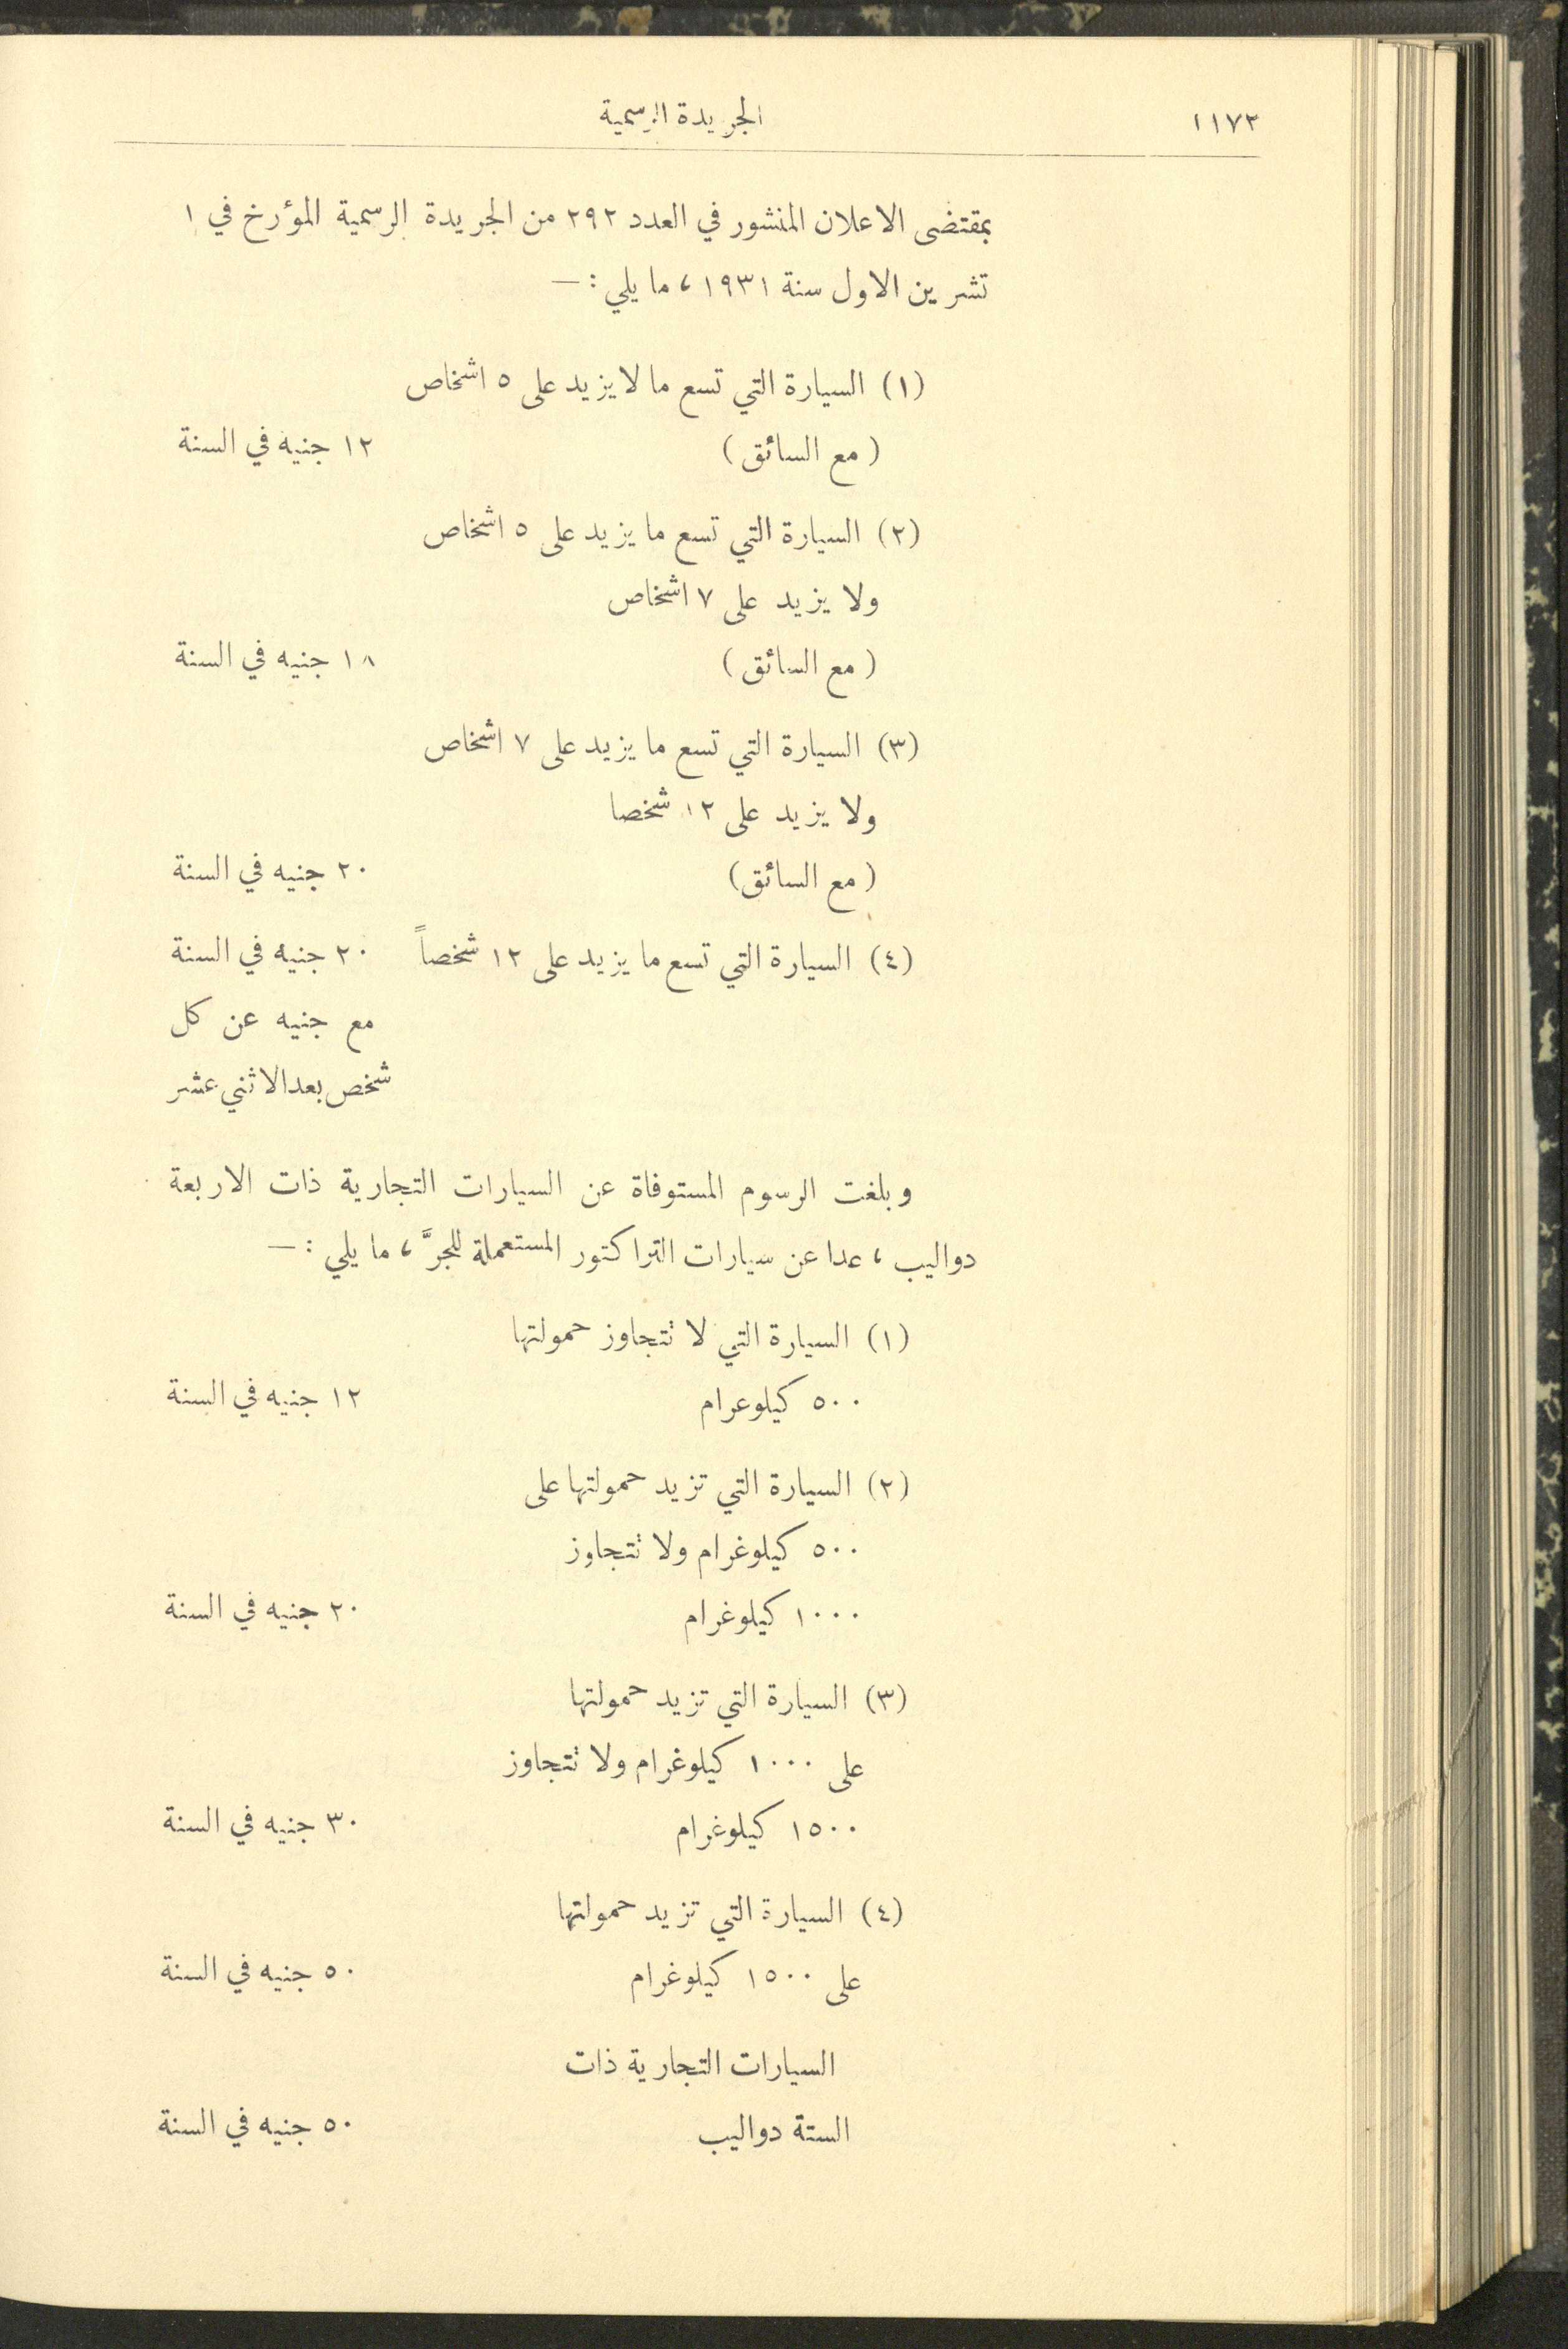 ١١٧٢ الجريدة الرسمية
بمقتضى الاعلان المنشور في العدد ٢٩٢ من الجريدة الرسمية المؤرخ في ١
تشرين الاول سنة ١٩٣١، ما يلي : —
(١) السيارة التي تسع ما لا يزيد على ٥ اشخاص
(مع السائق) ١٢ جنيه في السنة
(٢) السيارة التي تسع ما يزيد على ٥ اشخاص
ولا يزيد على ٧ اشخاص
(مع السائق) ١٨ جنيه في السنة
(٣) السيارة التي تسع ما يزيد على ٧ اشخاص
ولا يزيد على ١٢ شخصا
(مع السائق) ٢٠ جنيه في السنة
(٤) السيارة التي تسع ما يزيد على ١٢ شخصاً ٢٠ جنيه في السنة
مع جنيه عن كل
شخص بعد الاثني عشر
وبلغت الرسوم المستوفاة عن السيارات التجارية ذات الاربعة
دواليب، عدا عن سيارات التراكتور المستعملة للجرَّ، ما يلي : —
(١) السيارة التي لا تتجاوز حمولتها
٥٠٠ كيلوعرام ١٢ جنيه في السنة
(٢) السيارة التي تزيد حمولتها على
٥٠٠ كيلوغرام ولا تتجاوز
١٠٠٠ كيلوغرام ٢٠ جنيه في السنة
(٣) السيارة التي تزيد حمولتها
على ١٠٠٠ كيلوغرام ولا تتجاوز
١٥٠٠ كيلوغرام ٣٠ جنيه في السنة
(٤) السيارة التي تزيد حمولتها
على ١٥٠٠ كيلوغرام ٥٠ جنيه في السنة
السيارات التجارية ذات
الستة دواليب ٥٠ جنيه في السنة